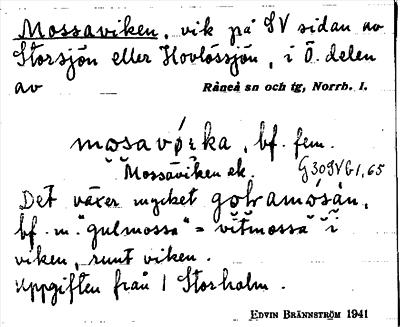 Mossaviken, vik på SV sidan av
Storsjön eller Hovlössjön, i Ö. delen
av Råneå sn och tg, Norrb. l.
mosavı̊ka, bf. fem.
Mossaviken ek. G30SVG1,65
Det växer mycket
bf. m. "gulmossa" = vitmossa i
viken, runt viken.
Uppgiften från 1 Storholm.
EDVIN BRÄNNSTRÖM 1941